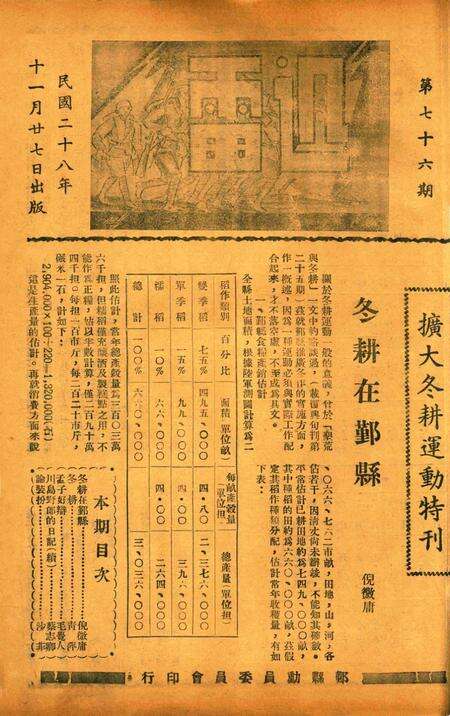 第七十六期
民國二十八年
十一月廿七日出版
擴大冬耕運動特刊
冬耕在鄞縣
倪徵庸
關於冬耕運動一般的意義,曾於「墾荒
與冬耕」一文中約略談過,(載鄞縣旬刊第
二十五期)茲就鄞縣推廣冬作的實施方面,
作一概述,因為一種運動必須與實際工作配
合起來,才不落空虛,不至成為具文。
一、鄞縣食糧產銷估計
全縣土地面積,根據陸軍測圖計算為二
、〇六六、七六二市畝,田地,山,河,各
佔若干,因清丈尚未辦竣,不能知其梗概。
平常估計已耕田地約為七四九、〇〇〇畝,
其中種稻的田約為六六〇、〇〇〇畝,茲假
定其稻作種類分配,估計常年收穫量,有如
下表:
稻作類別 百分比 面積單位畝 每畝產穀量(單位担) 總產量單位担
雙季稻 七五% 四九五、〇〇〇 四·八〇 二、三七六、〇〇〇
單季稻 一五% 九九、〇〇〇 四·〇〇 三九六、〇〇〇
糯稻 一〇% 六六、〇〇〇 四·〇〇 二六四、〇〇〇
總計 一〇〇% 六六〇、〇〇〇 三、〇三六、〇〇〇
照此估計,常年總產量為三百〇三萬
六千担,但糯稻僅充釀酒及製糕點之用,不
能作為正糧,估以半數計算,僅二百九十萬
四千担。每担一百市斤,每二百二十市斤,
碾米一石,計如下:
2,904,000×100÷220=1,320,000(石)
這是生產量的估計。再就消費方面來說
本期目次
冬耕在鄞縣 倪徵庸
冬耕 青萍
孟子好辯 毛覺人
川島野郎的日記(續) 蔡志卿
論裝扮 沙非
鄞縣動員委員會印行